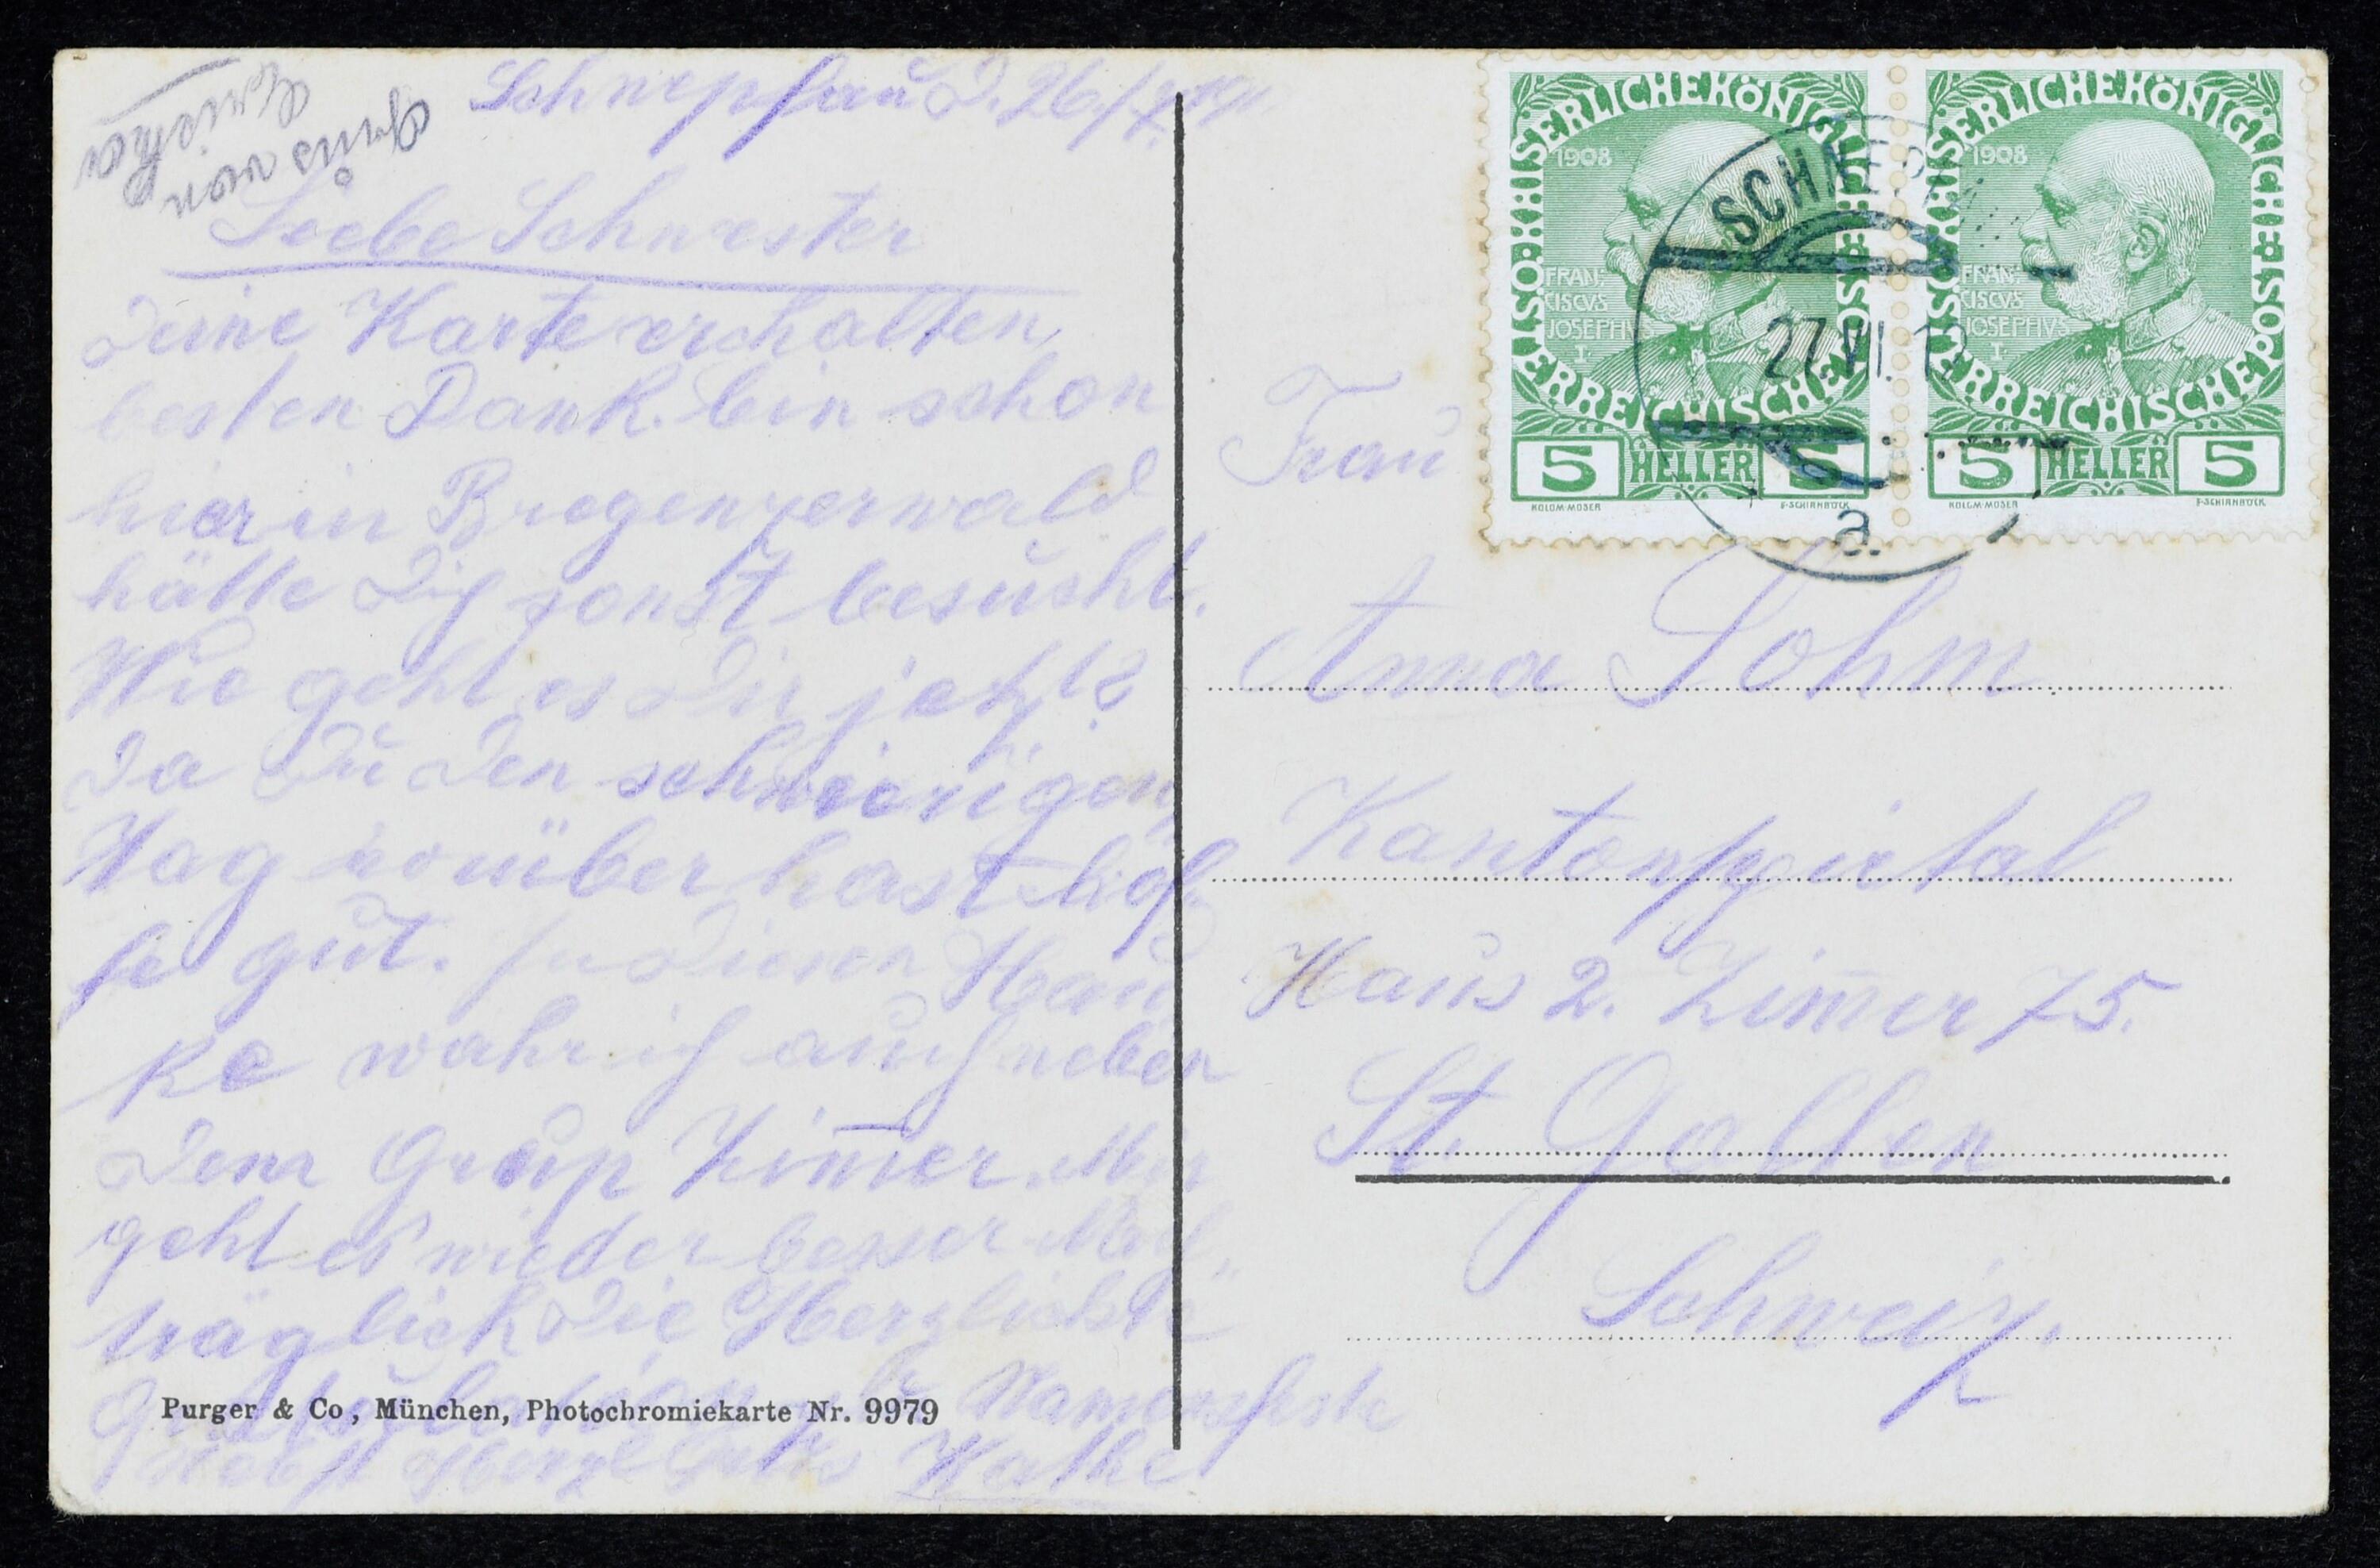 Schnepfau d. 26./7. 191
Liebe Schwester
Deine Karte erhalten,
besten Dank. bin schon
hier in Bregenzerwald
hätte Dich sonst besucht.
Wie geht es Dir jetzt?
Da Du den schwierigen
Tag vorüber hast hof-
fe gut. In diesem Hau
wohn ich auch neben
dem Zimmer. Mir
geht es wieder besser. Nach-
träglich die Herzlichste
Gratulation z. Namensfeste
Herzl. Gruss Kathe
Grüs von
Purger & Co, München, Photochromiekarte Nr. 9979
KAISERLICHE KÖNIGLICHE ÖSTERREICHISCHE POST
1908
FRAN-
CISCVS
JOSEPHVS
I.
5 HELLER 5
KOLOM·MOSER F·SCHIRNBÖCK
KAISERLICHE KÖNIGLICHE ÖSTERREICHISCHE POST
1908
FRAN-
CISCVS
JOSEPHVS
I.
5 HELLER 5
KOLOM·MOSER F·SCHIRNBÖCK
27.VII.12
a.
Frau
Anna Sohm
Kantonspital
Haus 2. Zimmer 75.
St. Gallen
Schweiz.